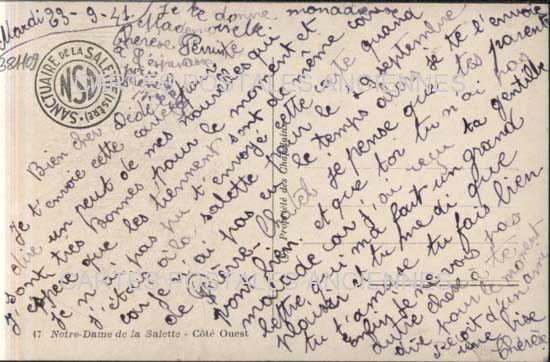 Mardi 23-9-41
Je te donne mon adresse
Mademoiselle
Thérèse Perrine
381109
SANCTUAIRE DE LA SALETTE (ISÈRE)
NSD
Bien cher
Je t'envoie cette carte pour
dire un peut de mes nouvelles qui
sont très bonnes pour le moment et
j'espère que les tiennent sont de même
je n'ai pas pu t'envoyé cette carte quand
j'était à la salette pour le septembre
car je n'ai pas eu le temps aussi je te l'envoie
de je pense que tes parents
vont bien et que toi tu n'ai pas
malade car j'ai reçu ta gentille
lettre qui m'a fait un grand
plaisir et tu me di que
tu t'amuse tu fais bien
enfin je vois pas
autre chose a te
dire pour le moment
reçoit d'un ami
une bise
Thérèse
Propriété des Chapelains
CARTES POSTALES ANCIENNES
CARTES POSTALES ANCIENNES
17 Notre-Dame de la Salette - Côté Ouest